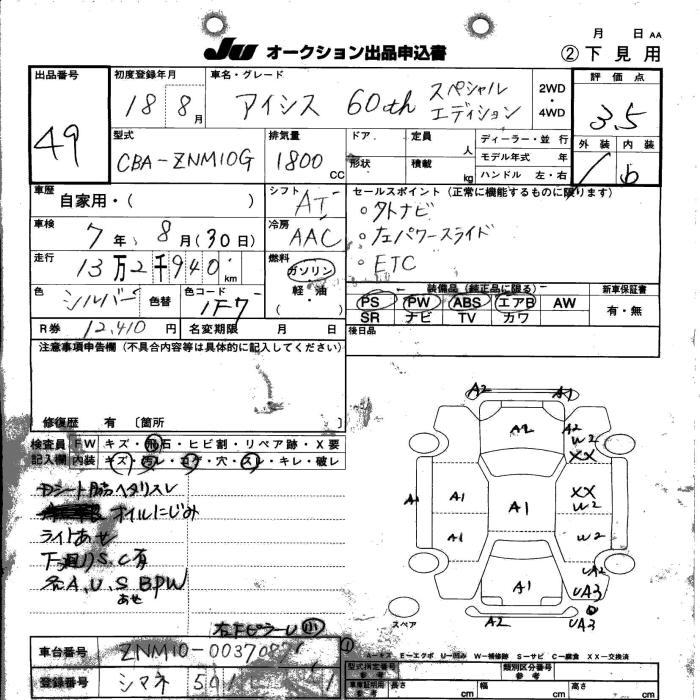 月 日 AA
JU オークション出品申込書
② 下見用
出品番号 49
初度登録年月 18 8月
車名・グレード アイシス 60th スペシャル エディション
2WD ・ 4WD
評価点 3.5
外装 内装 b
型式 CBA-ZNM10G
排気量 1800 CC
ドア 形状
定員 人
積載 kg
ディーラー・並行
モデル年式 年
ハンドル 左・右
車歴 自家用・( )
シフト AT
セールスポイント (正常に機能するものに限ります)
車検 7年 8月(30日)
冷房 AAC
。外ナビ
。左パワースライド
。ETC
走行 13万2千940km
燃料 ガソリン・軽油 ( )
色 シルバー 色替
色コード 1F7
装備品 (純正品に限る)
新車保証書 有・無
PS PW ABS エアB AW
SR ナビ TV カワ
R券 12,410円
名変期限 月 日
後日品
注意事項申告欄 (不具合内容等は具体的に記入してください)
修復歴 有 〔箇所 〕
検査員記入欄
FW キズ・飛石・ヒビ割・リペア跡・X要
内装 キズ・汚レ・コゲ・穴・スレ・キレ・破レ
オイルにじみ
ライトあせ
下廻りS.C有
各A.U.S BPW
あせ
A2 A1
A2 A2 W2
XX
A1 A1 A1 XX W2
A1 W2
UA2
A1 UA3
A2 UA3
スペア
小
車台番号 ZNM10-00370
登録番号 シマネ 501
A－キズ E－エクボ U－凹み W－補修跡 S－サビ C－腐食 XX－交換済
型式指定番号 参考
類別区分番号 参考
車輌証明 参考 長さ cm 幅 cm 高さ cm